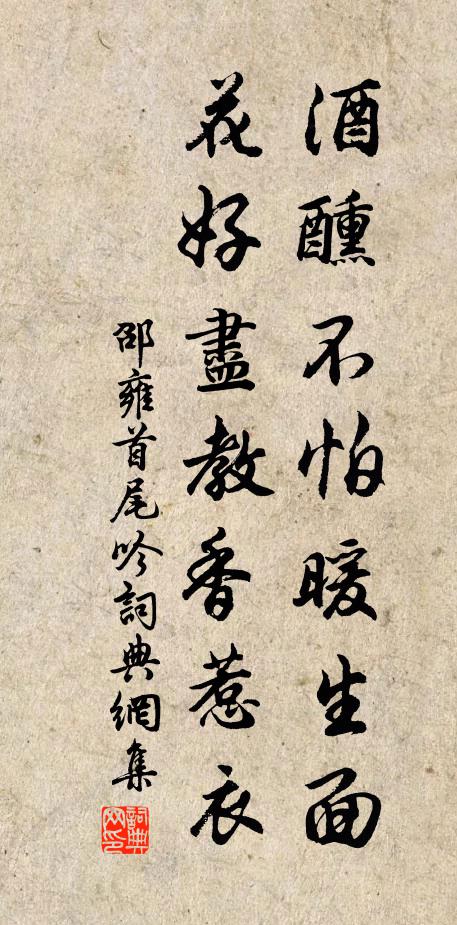 酒醺不怕暖生面
花好盡教香惹衣
邵雍首尾吟詞典網集
詞典网印